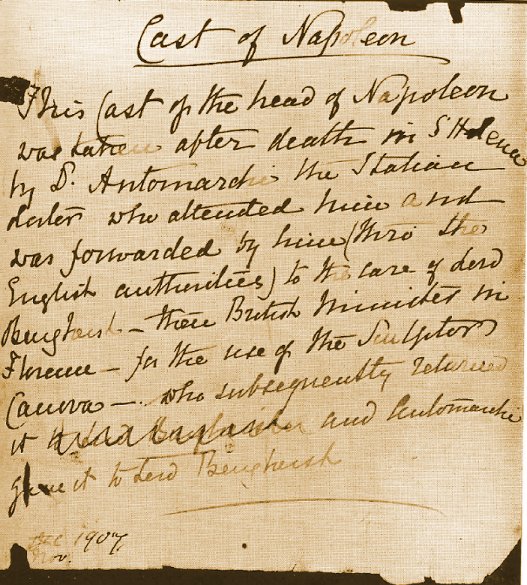 Cast of Napoleon
This Cast of the head of Napoleon
was taken after death in St Helena
by Dr. Antomarchi the Italian
doctor who attended him and
was forwarded by him (thro the
English authorities) to the care of Lord
Burghersh – then British Minister in
Florence – for the use of the Sculptor
Canova – who subsequently returned
it and Antomarchi
gave it to Lord Burghersh
1907
Nov.